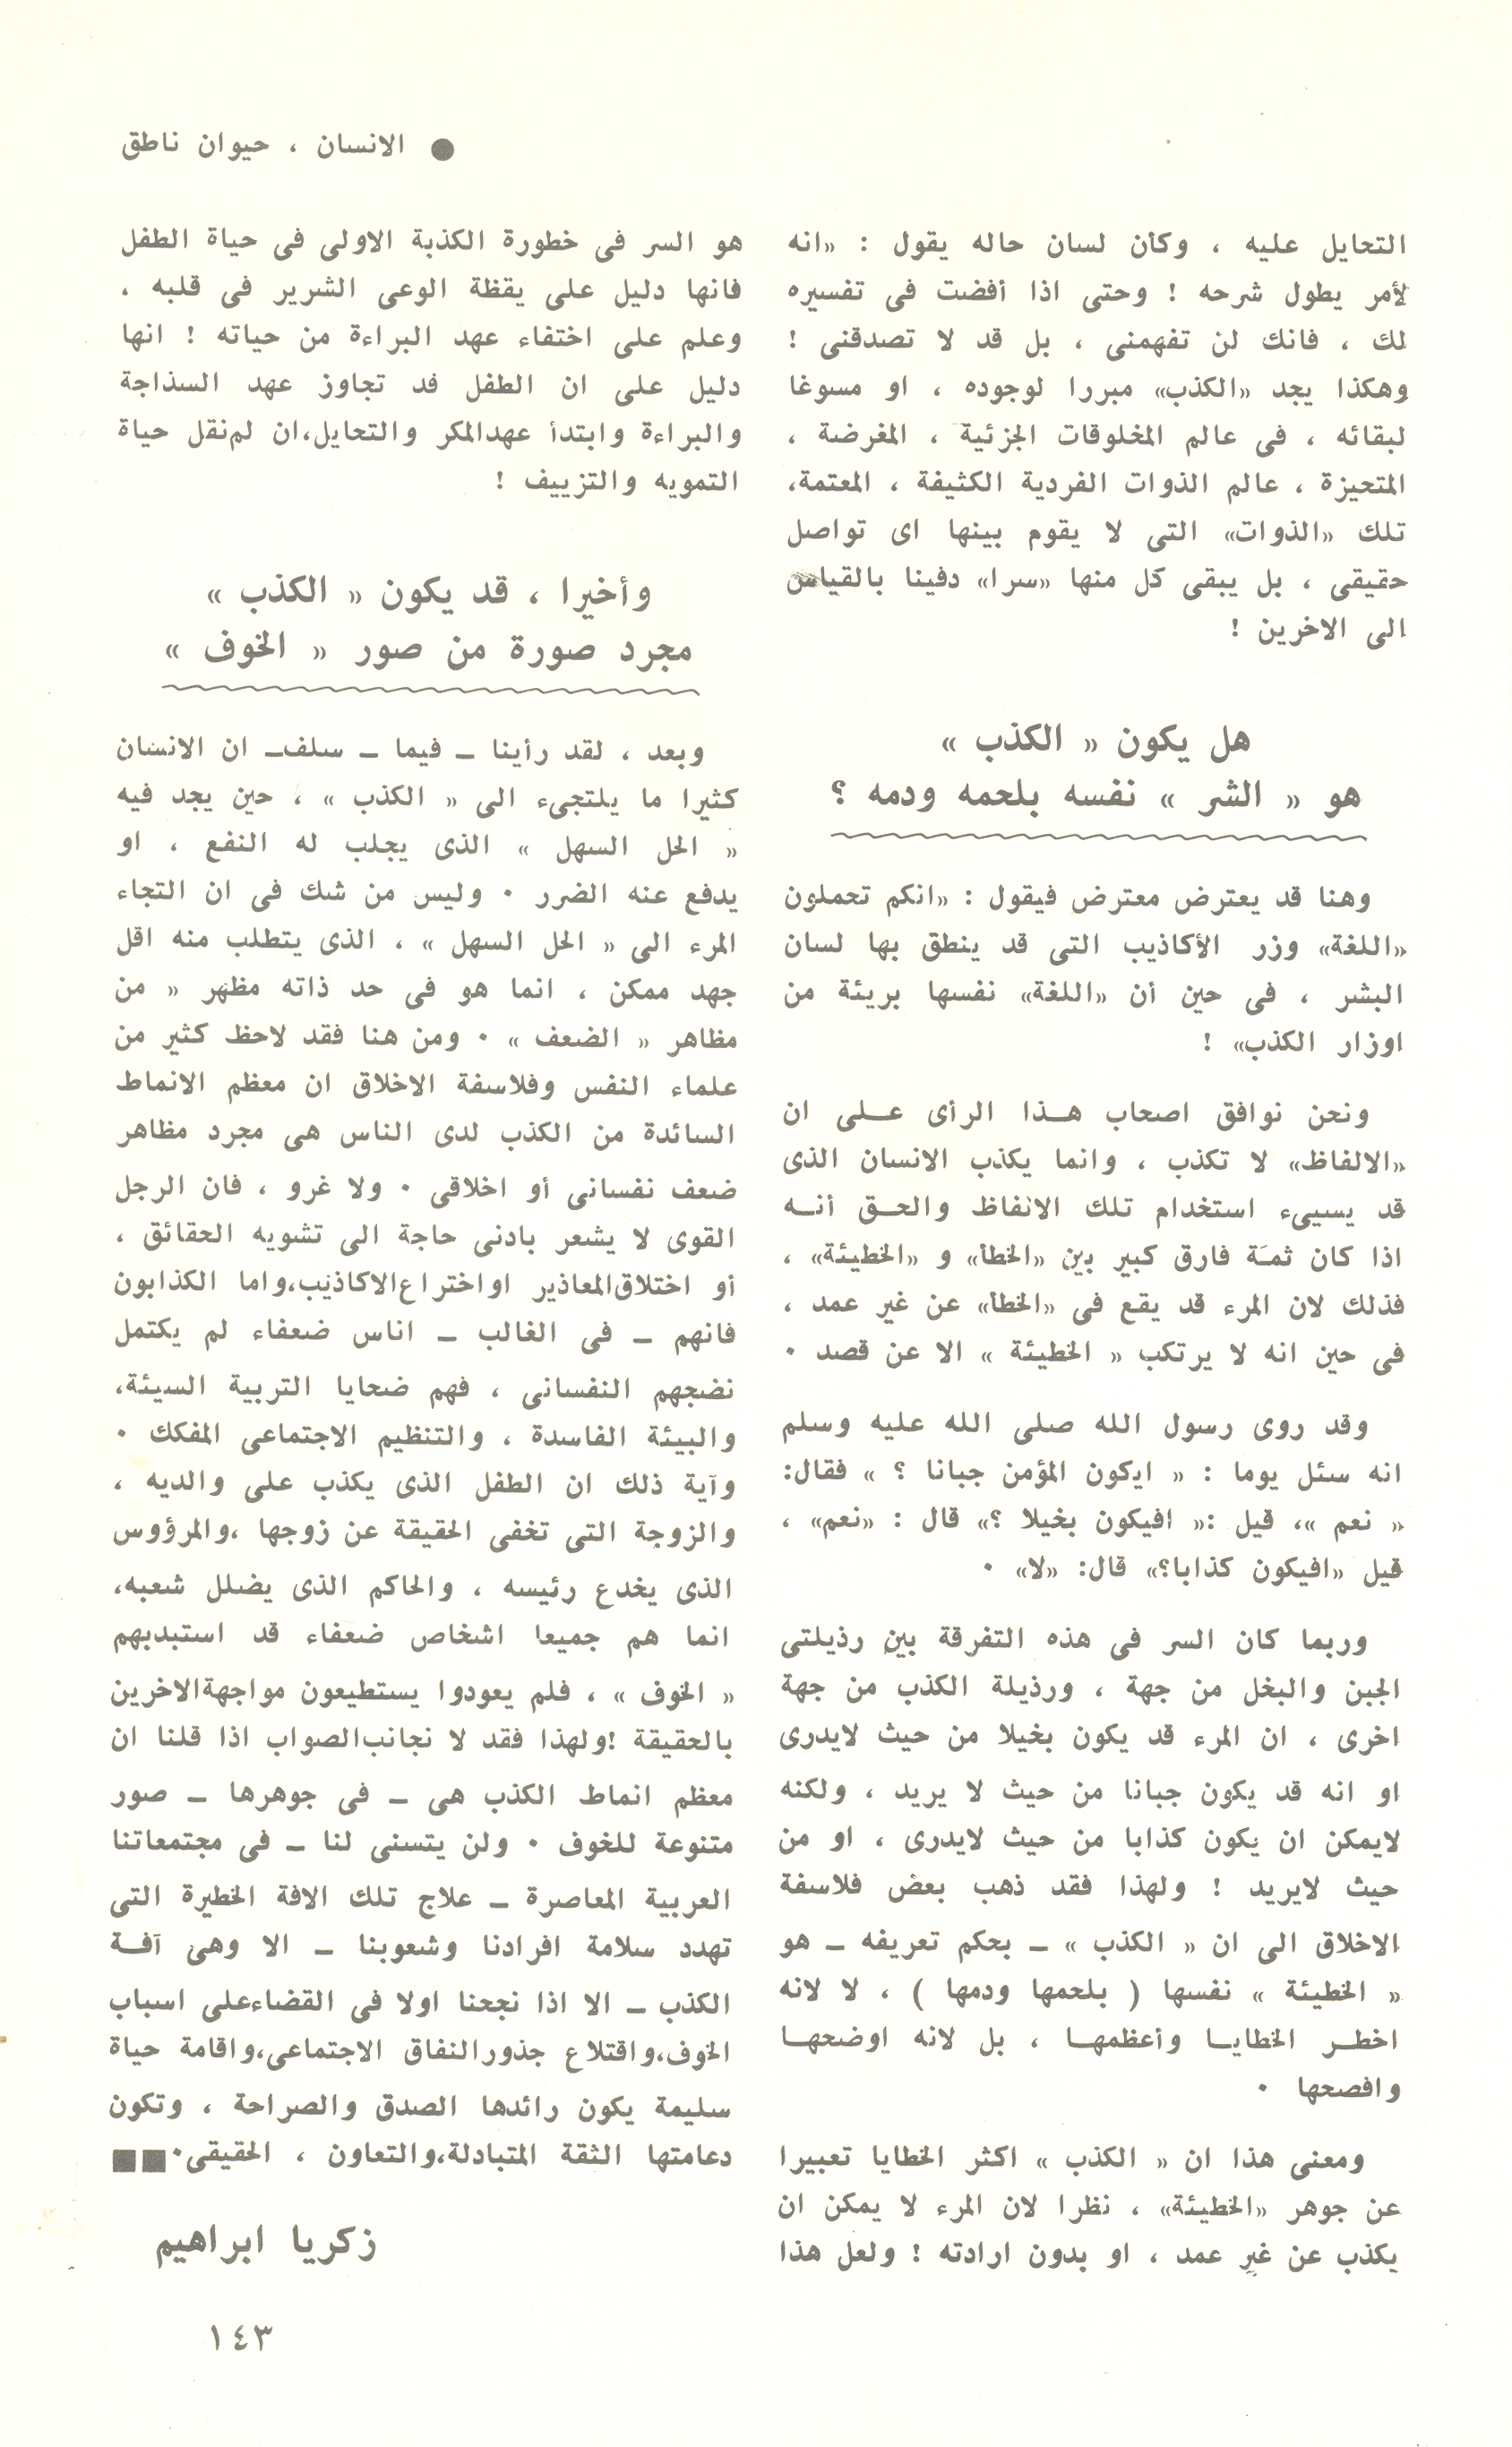 ● الانسان ، حيوان ناطق
التحايل عليه ، وكأن لسان حاله يقول : «انه
لأمر يطول شرحه ! وحتى اذا أفضت فى تفسيره
لك ، فانك لن تفهمنى ، بل قد لا تصدقنى !
وهكذا يجد «الكذب» مبررا لوجوده ، او مسوغا
لبقائه ، فى عالم المخلوقات الجزئية ، المغرضة ،
المتحيزة ، عالم الذوات الفردية الكثيفة ، المعتمة،
تلك «الذوات» التى لا يقوم بينها اى تواصل
حقيقى ، بل يبقى كل منها «سرا» دفينا بالقياس
الى الاخرين !
هل يكون « الكذب »
هو « الشر » نفسه بلحمه ودمه ؟
وهنا قد يعترض معترض فيقول : «انكم تحملون
«اللغة» وزر الأكاذيب التى قد ينطق بها لسان
البشر ، فى حين أن «اللغة» نفسها بريئة من
اوزار الكذب» !
ونحن نوافق اصحاب هـذا الرأى عـلى ان
«الالفاظ» لا تكذب ، وانما يكذب الانسان الذى
قد يسيىء استخدام تلك الالفاظ والحـق أنـه
اذا كان ثمَة فارق كبير بين «الخطأ» و «الخطيئة» ،
فذلك لان المرء قد يقع فى «الخطأ» عن غير عمد ،
فى حين انه لا يرتكب « الخطيئة » الا عن قصد ٠
وقد روى رسول الله صلى الله عليه وسلم
انه سئل يوما : « ايكون المؤمن جبانا ؟ » فقال:
« نعم »، قيل :« افيكون بخيلا ؟» قال : «نعم» ،
قيل «افيكون كذابا؟» قال: «لا» ٠
وربما كان السر فى هذه التفرقة بين رذيلتى
الجبن والبخل من جهة ، ورذيلة الكذب من جهة
اخرى ، ان المرء قد يكون بخيلا من حيث لايدرى
او انه قد يكون جبانا من حيث لا يريد ، ولكنه
لايمكن ان يكون كذابا من حيث لايدرى ، او من
حيث لايريد ! ولهذا فقد ذهب بعض فلاسفة
الاخلاق الى ان « الكذب » ـ بحكم تعريفه ـ هو
« الخطيئة » نفسها ( بلحمها ودمها ) ، لا لانه
اخطـر الخطايـا وأعظمهـا ، بل لانه اوضحهـا
وافصحها ٠
ومعنى هذا ان « الكذب » اكثر الخطايا تعبيرا
عن جوهر «الخطيئة» ، نظرا لان المرء لا يمكن ان
يكذب عن غير عمد ، او بدون ارادته ! ولعل هذا
هو السر فى خطورة الكذبة الاولى فى حياة الطفل
فانها دليل على يقظة الوعى الشرير فى قلبه ،
وعلم على اختفاء عهد البراءة من حياته ! انها
دليل على ان الطفل فد تجاوز عهد السذاجة
والبراءة وابتدأ عهدالمكر والتحايل،ان لم‌نقل حياة
التمويه والتزييف !
وأخيرا ، قد يكون « الكذب »
مجرد صورة من صور « الخوف »
وبعد ، لقد رأينا ـ فيما ـ سلف‍ـ ان الانسان
كثيرا ما يلتجىء الى « الكذب » ، حين يجد فيه
« الحل السهل » الذى يجلب له النفع ، او
يدفع عنه الضرر ٠ وليس من شك فى ان التجاء
المرء الى « الحل السهل » ، الذى يتطلب منه اقل
جهد ممكن ، انما هو فى حد ذاته مظهر « من
مظاهر « الضعف » ٠ ومن هنا فقد لاحظ كثير من
علماء النفس وفلاسفة الاخلاق ان معظم الانماط
السائدة من الكذب لدى الناس هى مجرد مظاهر
ضعف نفسانى أو اخلاقى ٠ ولا غرو ، فان الرجل
القوى لا يشعر بادنى حاجة الى تشويه الحقائق ،
أو اختلاق‌المعاذير اواختراع‌الاكاذيب،واما الكذابون
فانهم ـ فى الغالب ـ اناس ضعفاء لم يكتمل
نضجهم النفسانى ، فهم ضحايا التربية السيئة،
والبيئة الفاسدة ، والتنظيم الاجتماعى المفكك ٠
وآية ذلك ان الطفل الذى يكذب على والديه ،
والزوجة التى تخفى الحقيقة عن زوجها ،والمرؤوس
الذى يخدع رئيسه ، والحاكم الذى يضلل شعبه،
انما هم جميعا اشخاص ضعفاء قد استبدبهم
« الخوف » ، فلم يعودوا يستطيعون مواجهةالاخرين
بالحقيقة !ولهذا فقد لا نجانب‌الصواب اذا قلنا ان
معظم انماط الكذب هى ـ فى جوهرها ـ صور
متنوعة للخوف ٠ ولن يتسنى لنا ـ فى مجتمعاتنا
العربية المعاصرة ـ علاج تلك الافة الخطيرة التى
تهدد سلامة افرادنا وشعوبنا ـ الا وهى آفـة
الكذب ـ الا اذا نجحنا اولا فى القضاءعلى اسباب
الخوف،واقتلاع جذورالنفاق الاجتماعى،واقامة حياة
سليمة يكون رائدها الصدق والصراحة ، وتكون
دعامتها الثقة المتبادلة،والتعاون ، الحقيقى٠■■
زكريا ابراهيم
١٤٣